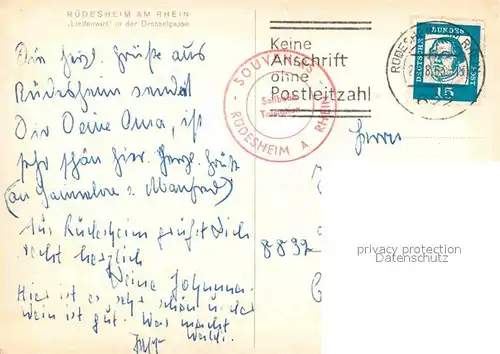 RÜDESHEIM AM RHEIN
„Lindenwirt" in der Drosselgasse
Die herzl. Grüße aus
Rüdesheim sendet
Dir Deine Oma, ist
sehr schön hier. Herzl. Grüße
(an Hannelore u. Manfred)
Aus Rüdesheim grüßt Dich
recht herzlich
Deine Johanna
Hier ist es sehr schön u. der
Wein ist gut. Was macht
Keine
Anschrift
ohne
Postleitzahl
SOUVENIRS
RÜDESHEIM A. RHEIN
DEUTSCHE BUNDESPOST
15
Herrn
8832
privacy protection
Datenschutz